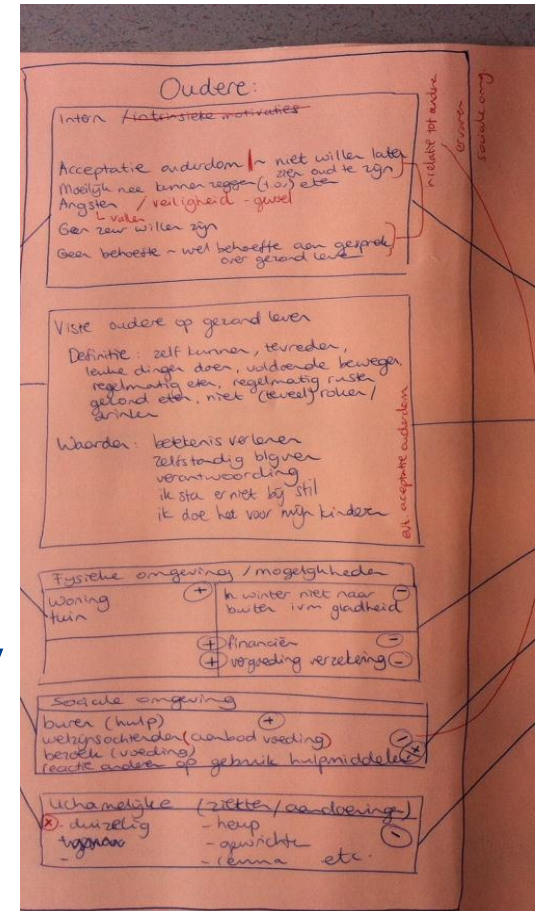 Oudere:
Intern / intrinsieke motivaties
Acceptatie ouderdom | ~ niet willen laten
zien oud te zijn
Moeilijk nee kunnen zeggen (t.o.) eten
Angsten / veiligheid - gevoel
↳ vallen
Geen zeur willen zijn
Geen behoefte ~ wel behoefte aan gesprek
over gezond leven
in relatie tot andre
ervaren
sociale omg.
Visie oudere op gezond leven
Definitie: zelf kunnen, tevreden,
leuke dingen doen, voldoende bewegen,
regelmatig eten, regelmatig rusten
gezond eten, niet (teveel) roken /
drinken
Waarden: betekenis verlenen
zelfstandig blijven
verantwoording
ik sta er niet bij stil
ik doe het voor mijn kinderen
evt. acceptatie ouderdom
Fysieke omgeving / mogelijkheden
woning +
tuin
In winter niet naar -
buiten ivm gladheid
+ financiën -
+ vergoeding verzekering -
Sociale omgeving
buren (hulp) +
welzijnsochtenden (aanbod voeding) -
bezoek (voeding) +
reactie anderen op gebruik hulpmiddelen
Lichamelijke (ziekten / aandoeningen)
x - duizelig - heup -
- gewrichten
- reuma etc.